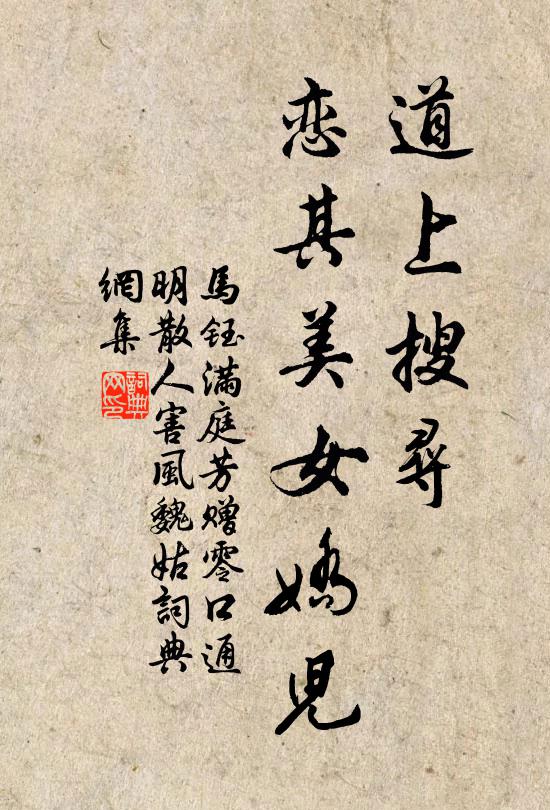 道上搜尋
戀其美女嬌兒
馬鈺滿庭芳贈零口通
明散人害風魏姑詞典
網集
詞典網印